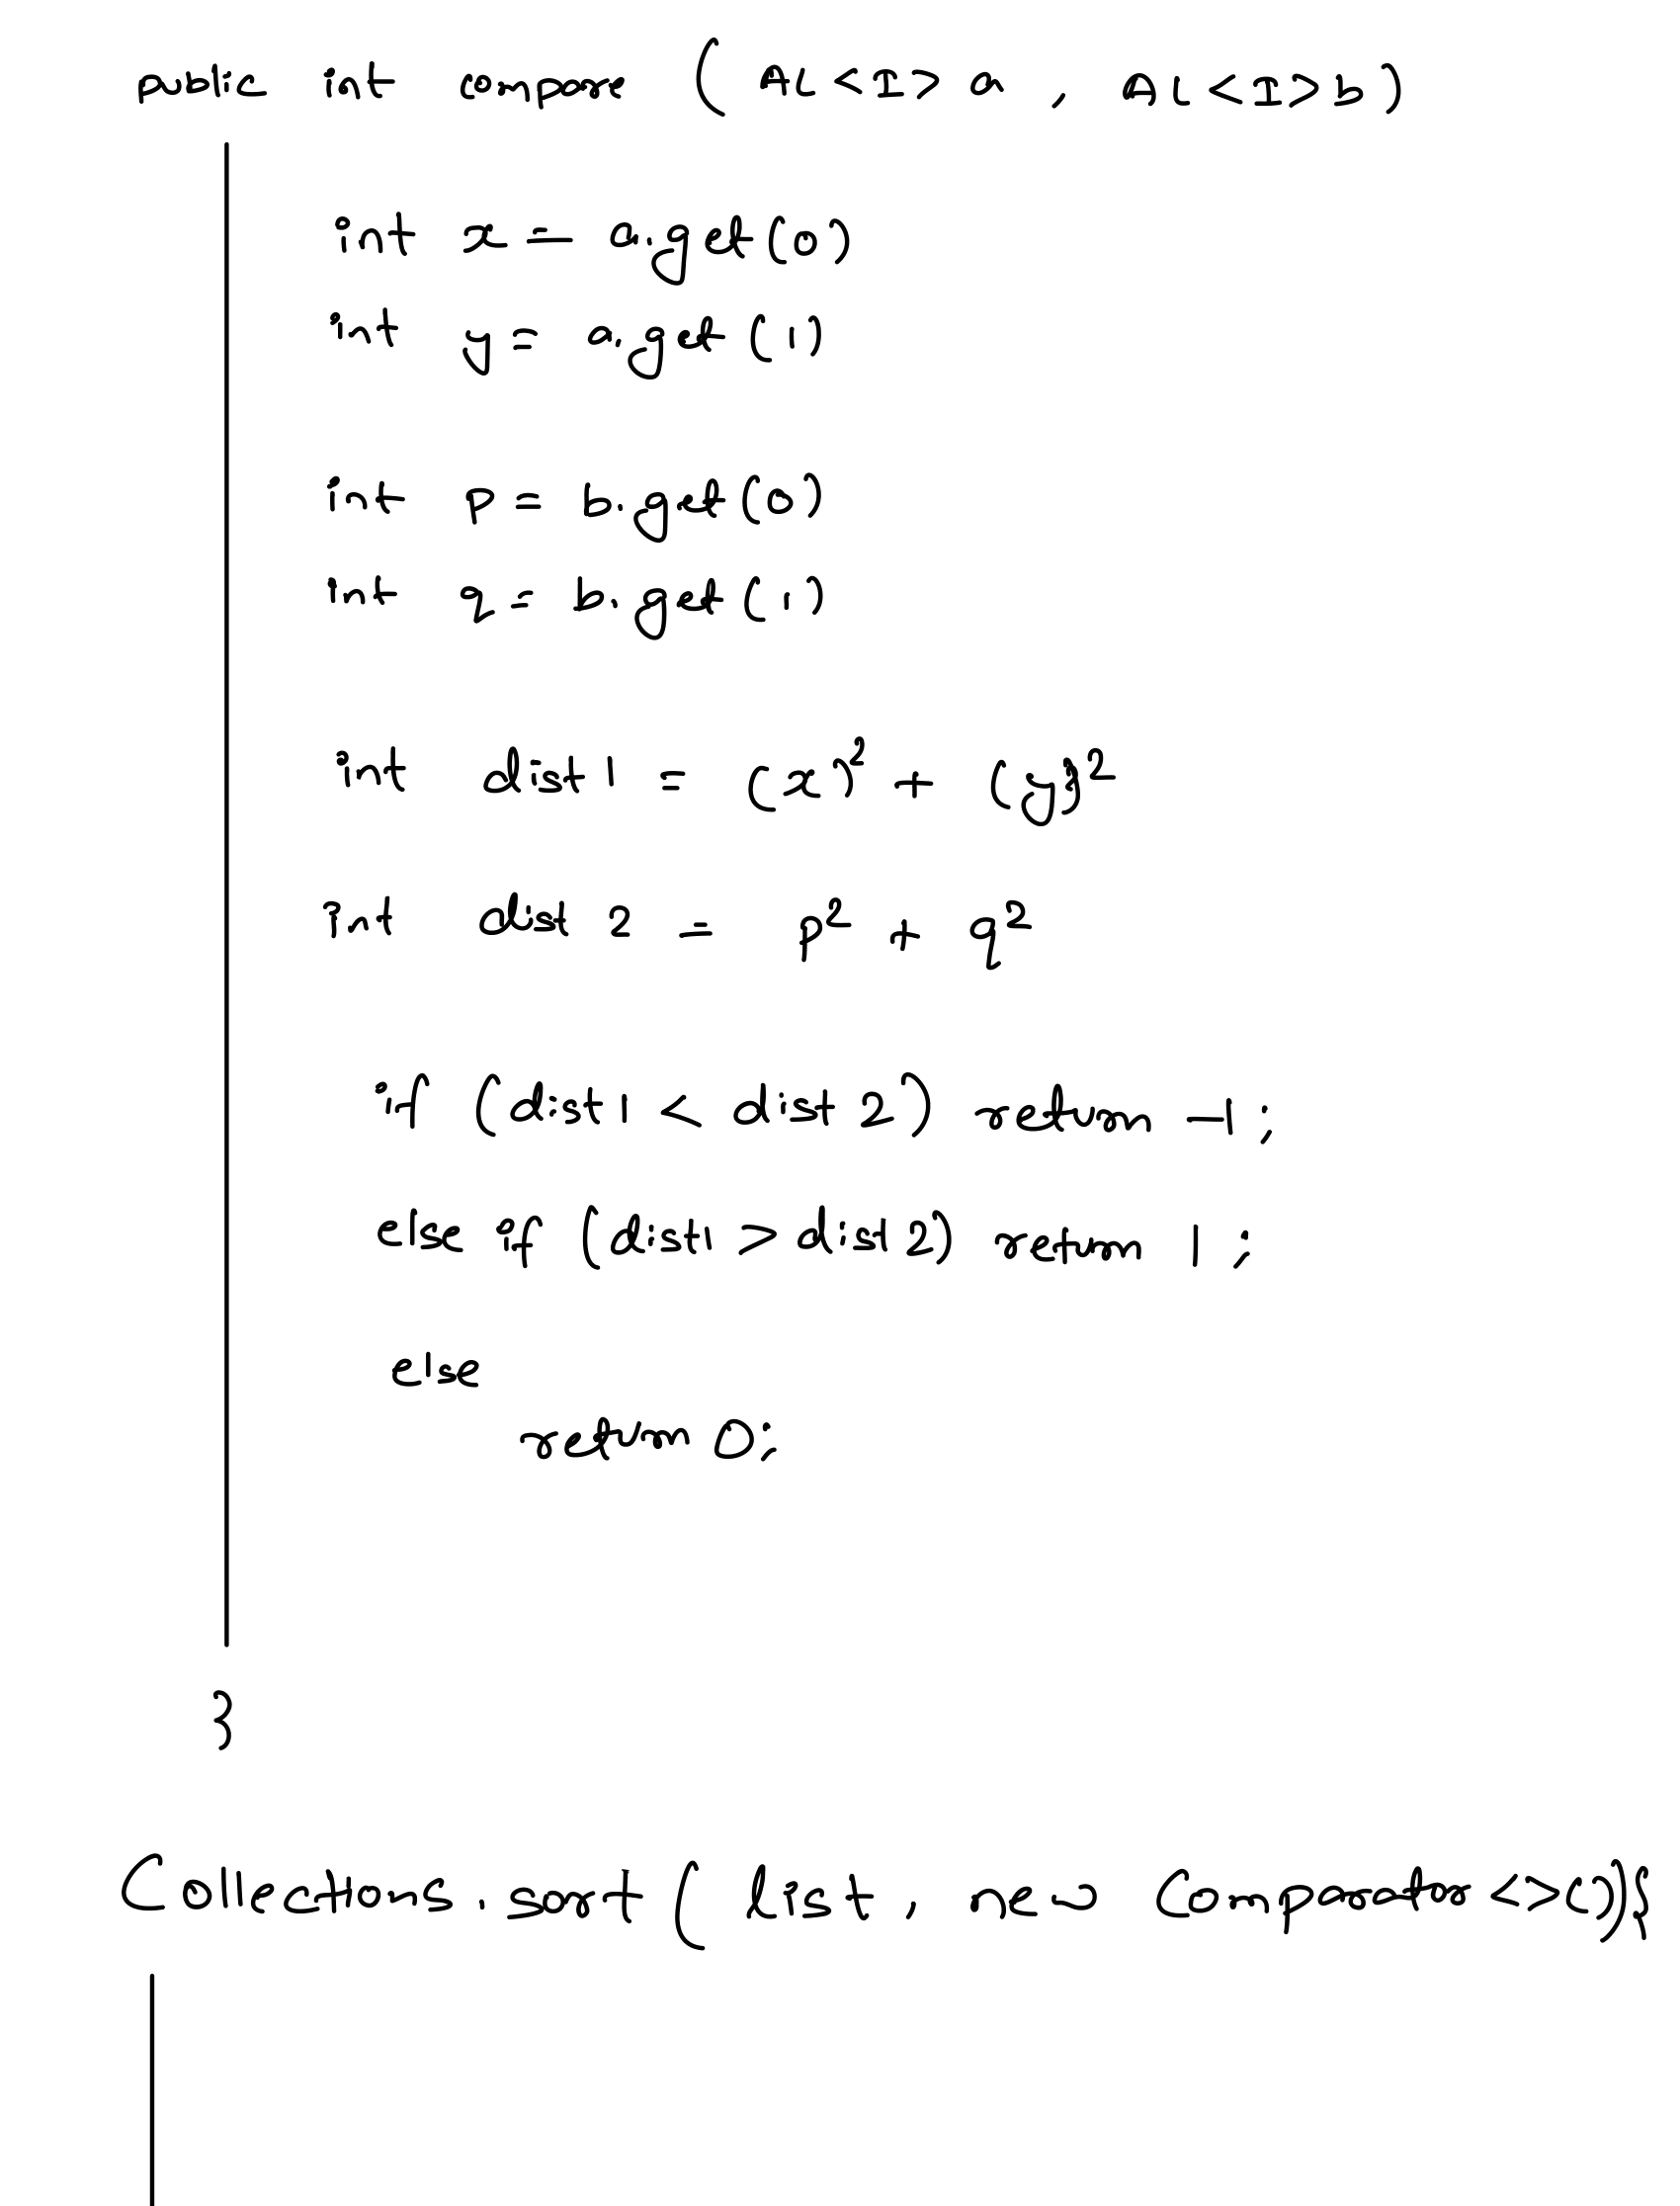 public int compare ( AL<I> a , AL<I> b )
int x = a.get(0)
int y = a.get(1)
int p = b.get(0)
int q = b.get(1)
int dist1 = (x)² + (y)²
int dist 2 = p² + q²
if (dist1 < dist 2) return -1 ;
else if (dist1 > dist 2) return 1 ;
else
return 0;
}
Collections.sort ( list , new Comparator<>()){